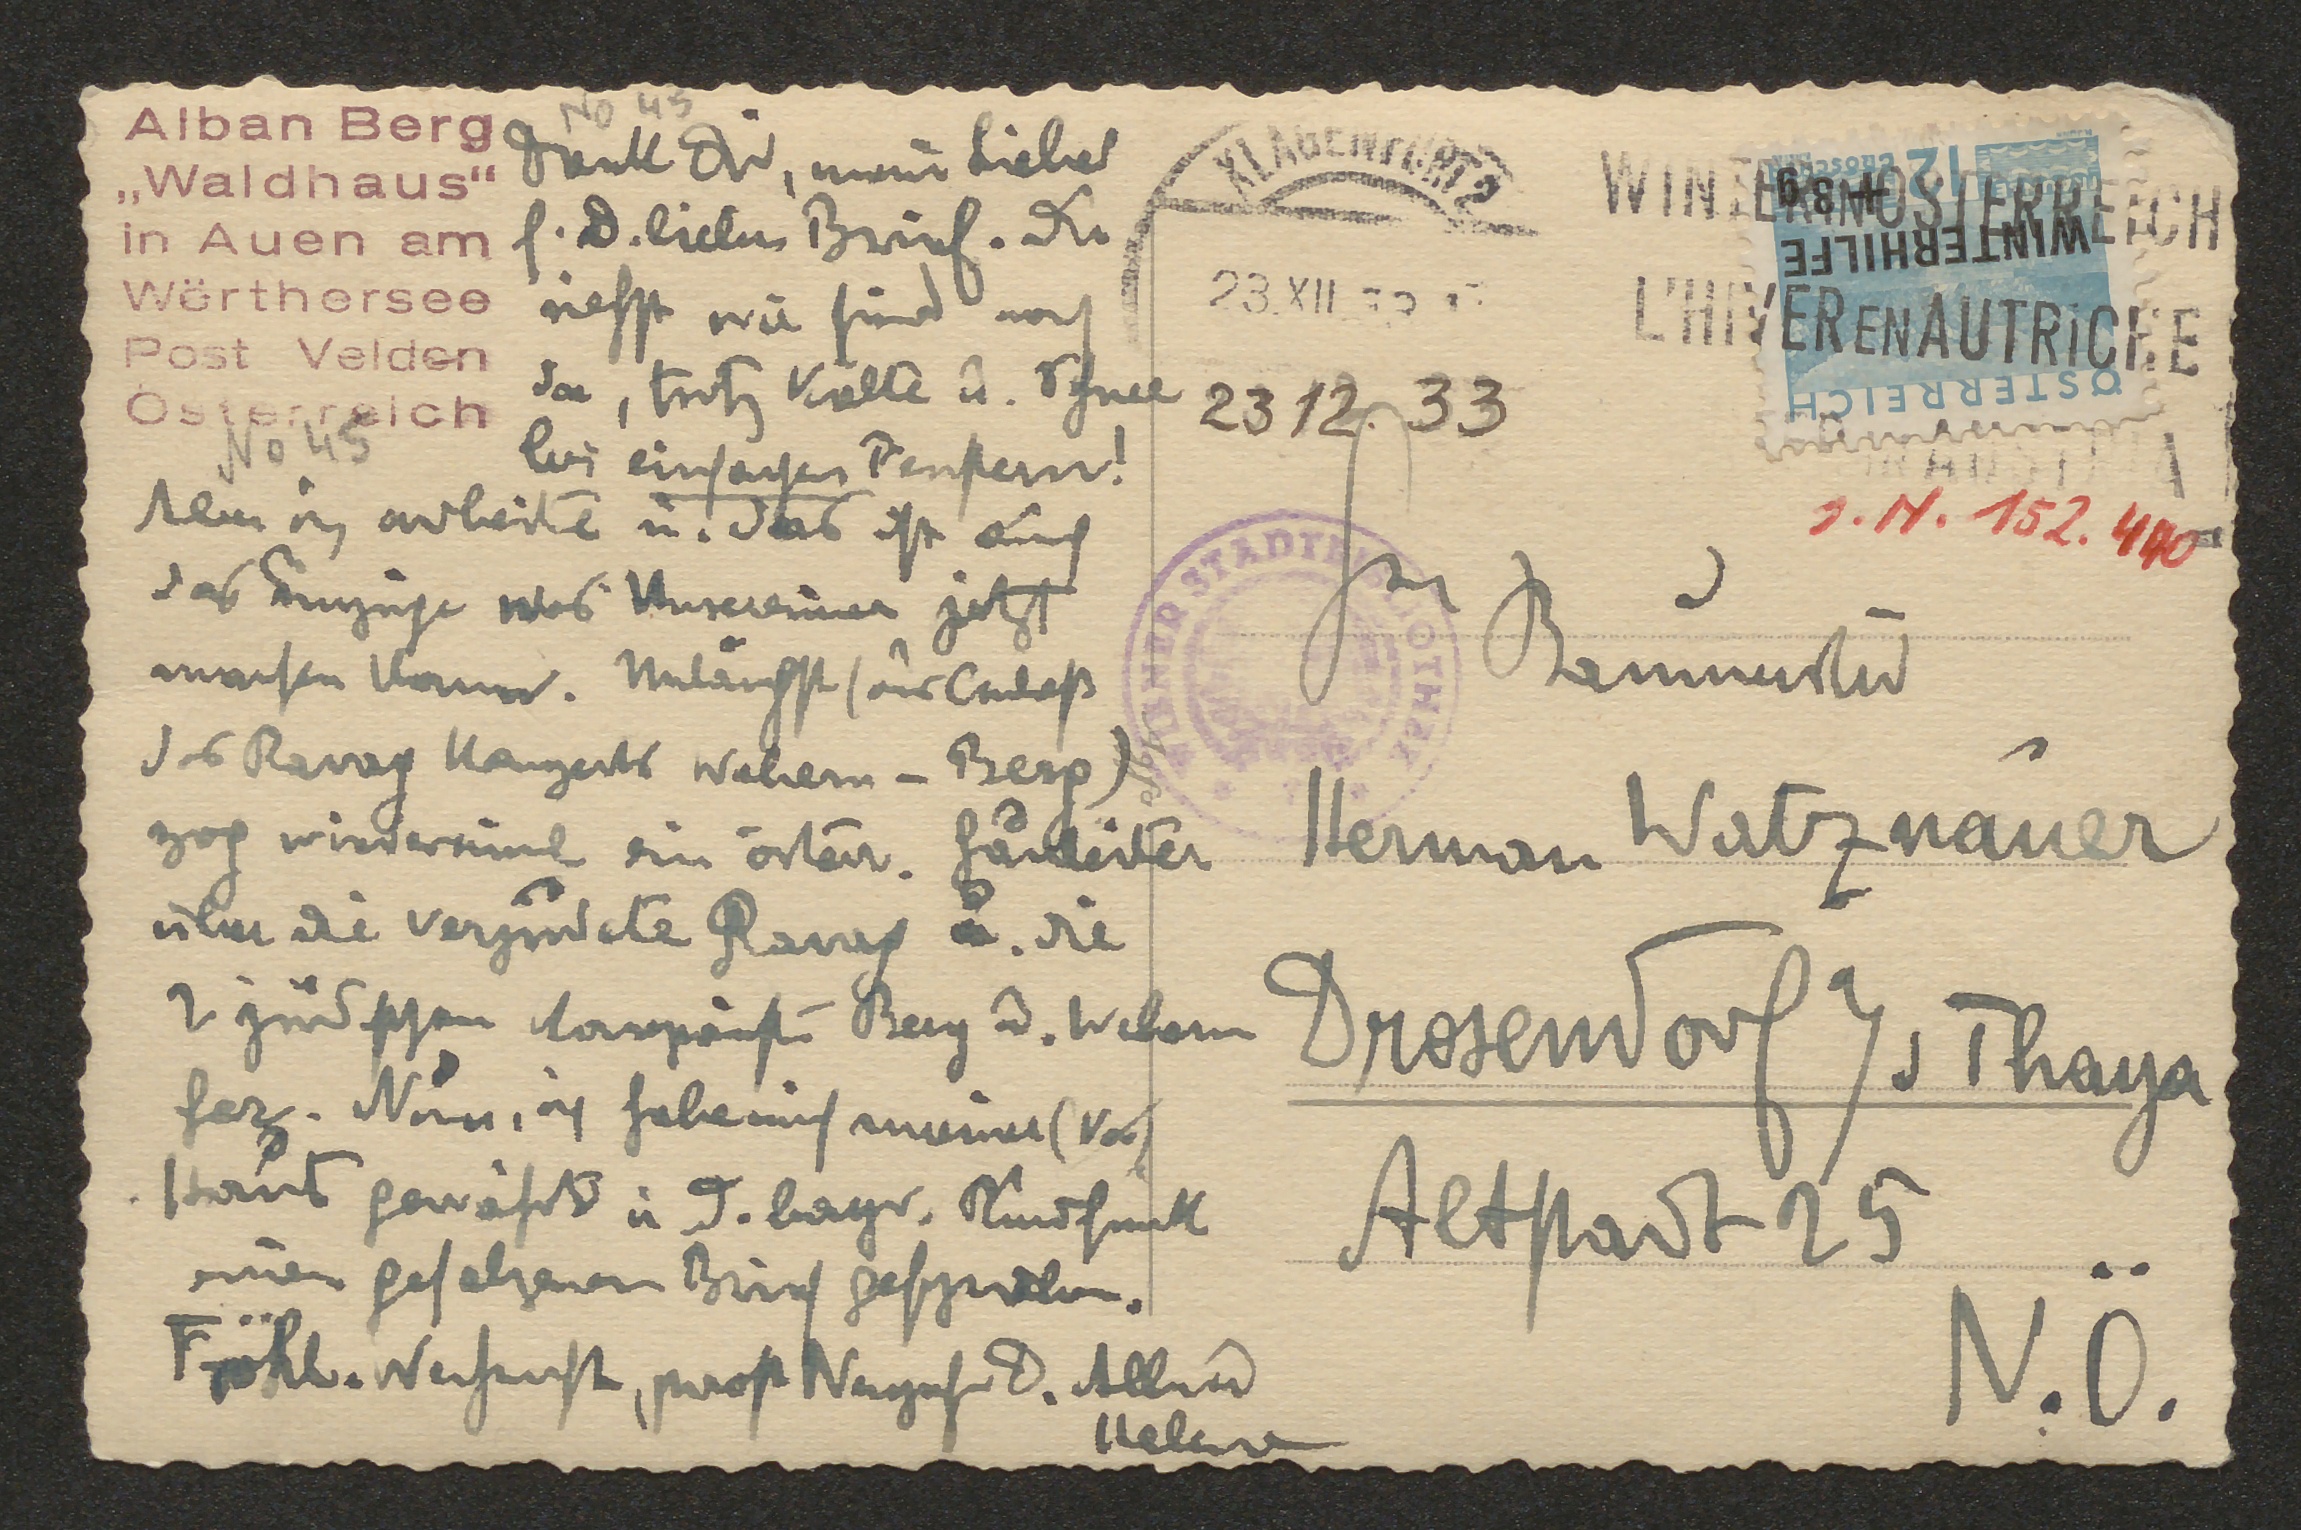 Alban Berg
„Waldhaus“
in Auen am
Wörthersee
Post Velden
Österreich
No 45
No 45
Dank Dir, mein Lieber
f. D. lieben Brief. Du
siehst wir sind noch
da, trotz Kälte u. Schnee
bei einfachen Fenstern!
Aber ich arbeite u. das ist auch
das Einzige was Unsereiner jetzt
machen kann. Unlängst (anläßl.
des Ravag Konzerts Webern – Berg)
zog wiedereinmal ein österr. Gauleiter
über die verjudete Ravag u. die
2 jüdischen Komponisten Berg u. Webern
her. Nun, ich habe mich meiner
Haut gewehrt u. d. bayr. Rundfunk
einen gesalzenen Brief geschrieben.
Fröhl. Weihnacht, prost Neujahr D. Alban
Helene
KLAGENFURT 2
23.XII.33
WINTER IN ÖSTERREICH
L'HIVER EN AUTRICHE
IN AUSTRIA
12 GROSCHEN
+ 3 g
WINTERHILFE
ÖSTERREICH
23 12. 33
I. N. 152.440
WIENER STADTBIBLIOTHEK
Hr
Baumeister
Herman Watznauer
Drosendorf a/d Thaya
Altstadt 25
N.Ö.